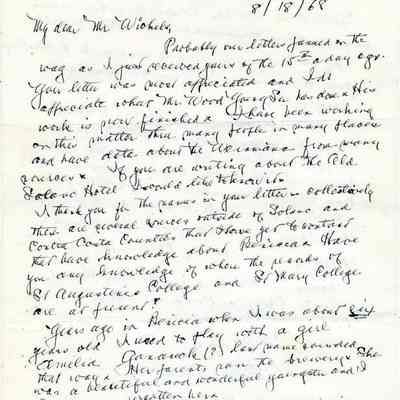 8/18/68
My dear Mr. Wichels,
Probably our letters passed on the
way as I just received yours of the 15th a day ago.
Your letter was most appreciated and I do
appreciate what Mr. Wood Young Sr. has done. His
work is now finished. I have been working
on this matter thru many people in many places
and have data about the from many
sources. If you are writing about the Old
Solano Hotel I would like to know it.
I thank you for the names in your letters collectively
there are several sources outside of Solano and
Contra Costa Counties that I have yet to contact
that have knowledge about Benicia. Have
you any knowledge of where the records of
St Augustine College and St Mary College
are at present?
Years ago in Benicia when I was about six
years old I used to play with a girl
Amelia (?) last name sounded
that way. Her parents ran the brewery. She
was a beautiful and wonderful youngster and I
here